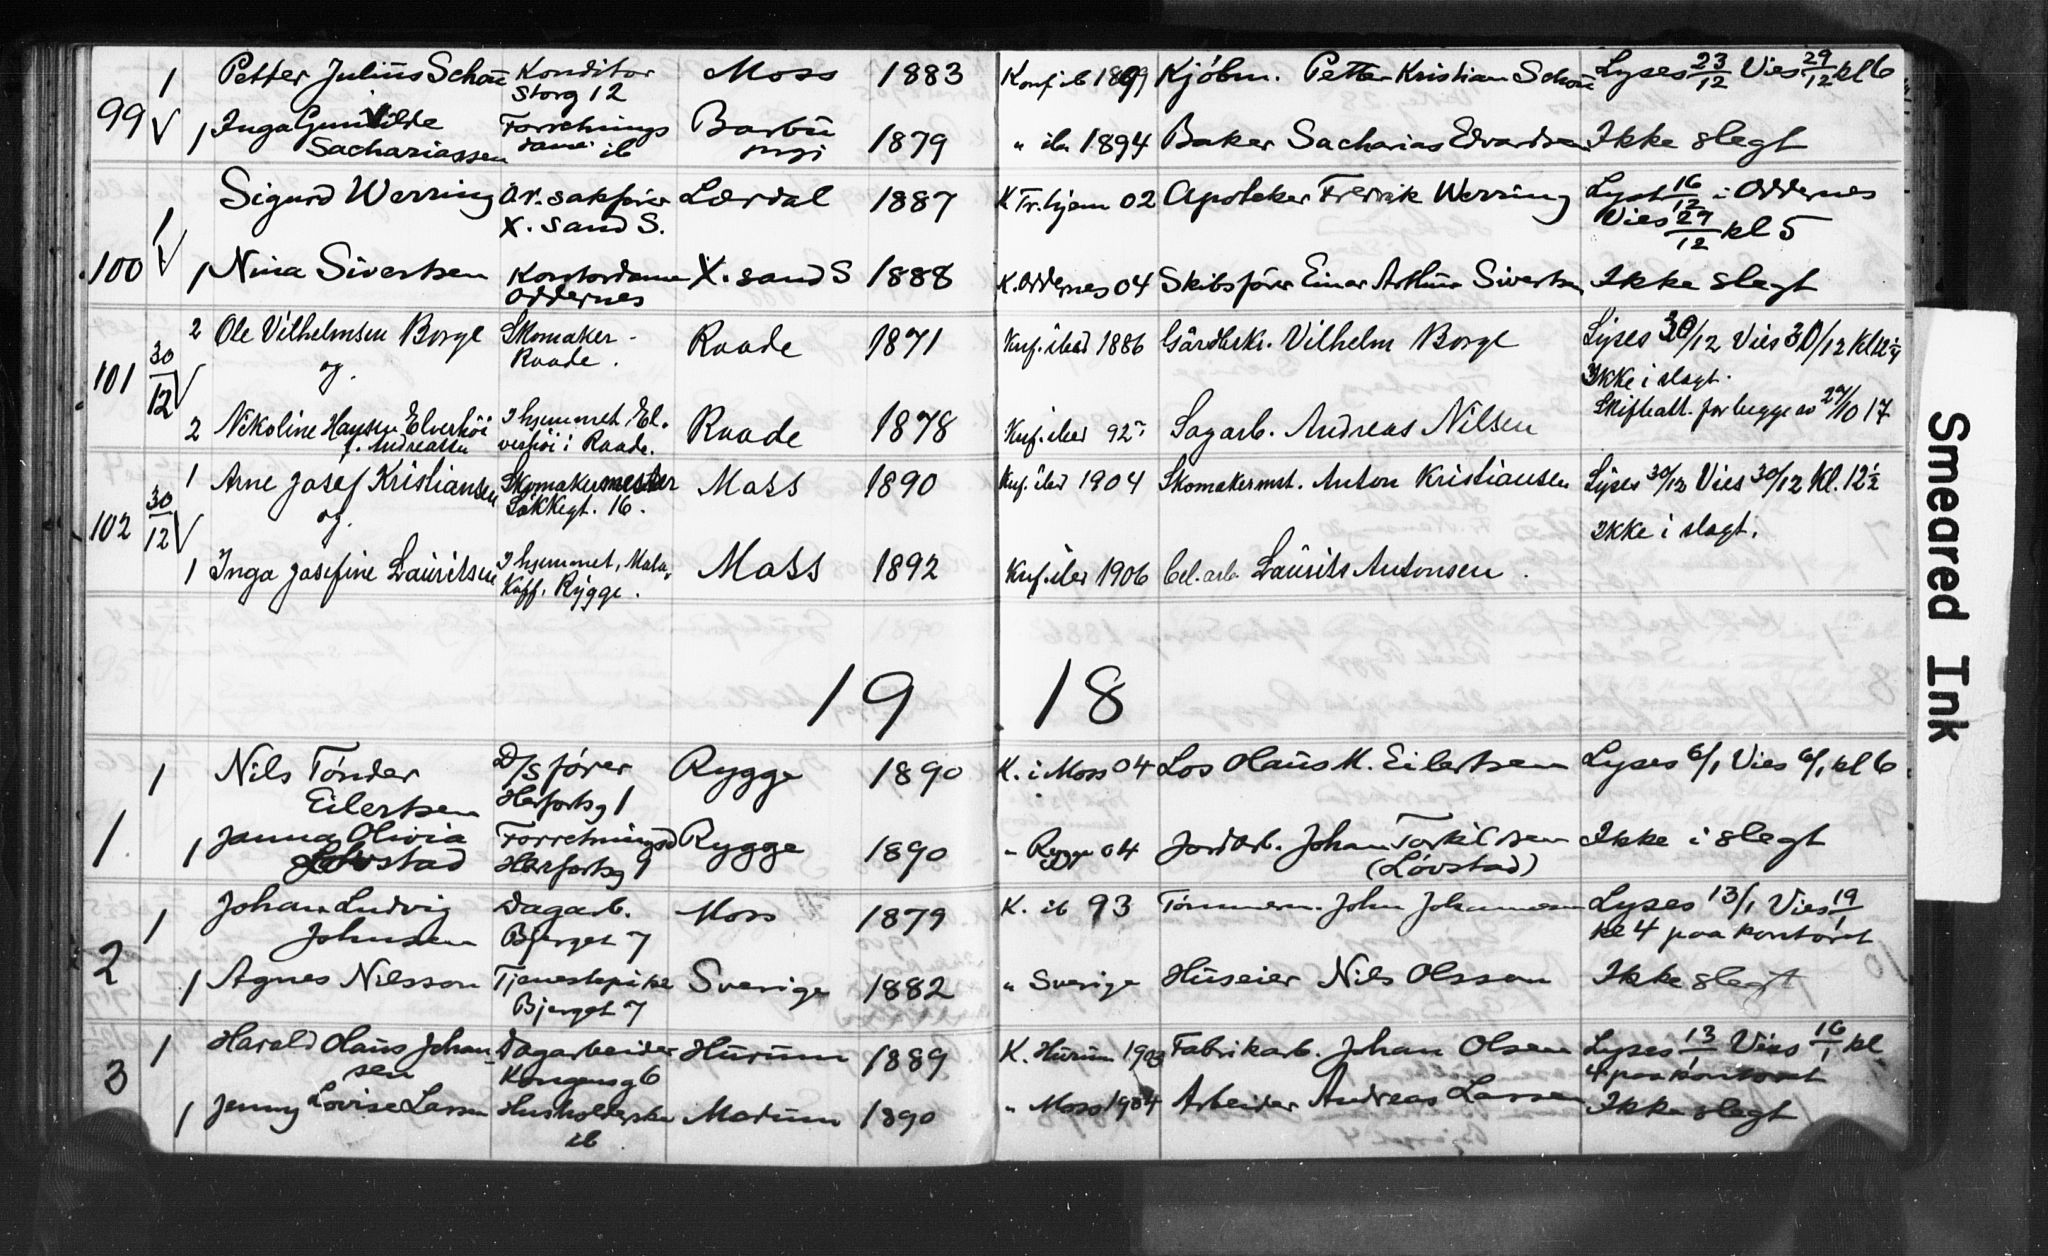 99 1 Petter Julius Schau Konditor Storg 12 Moss 1883 Konf ib 1899 Kjöbm. Petter Kristian Schau Lyses 23/12 Vies 29/12 kl 6
√ 1 Inga Gunhilde Sachariassen Forretnings dame ib Barbu 1879 " ib 1894 Baker Sacharias Edvardsen Ikke slegt
100 1 √ Sigurd Werring O.r. sakfører X. sand S. Lærdal 1887 K Tr.hjem 02 Apoteker Fredrik Werring Lyst 16/12 i Oddernes Vies 29/12 kl 5
1 Nina Sivertsen Kontordame Oddernes X. sand S 1888 K. Oddernes 04 Skibsfører Einar Arthur Sivertsen Ikke slegt
101 30/12 √ 2 Ole Vilhelmsen Borge og. Skomaker - Raade. Raade 1871 Knf. ibid 1886 Gårdbkr. Vilhelm Borge Lyses 30/12 Vies 30/12 Kl 12¼ Ikke i slagt.
2 Nikoline Hansen Elverhöi f. Andreassen I hjemmet El. verhöi i Raade. Raade 1878 Knf. ibid 92 Sagarb. Andreas Nilsen Skifteatt. for begge av 27/10 17
102 30/12 √ 1 Arne Josef Kristiansen og. Skomakermester Låkkegt. 16. Moss 1890 Knf. ibid 1904 Skomakermst. Anton Kristiansen Lyses 30/12 Vies 30/12 Kl. 12½
Ikke i slagt.
1 Inga Josefine Lauritsen I hjemmet, Mala, Koff. Rygge. Moss 1892 Knf. ibid 1906 Cel. arb. Laurits Antonsen.
1918
1 1 Nils Tönder Eilertsen D/S förer Herfortsg 1 Rygge 1890 K. i Moss 04 Los Olaus M. Eilertsen Lyses 6/1 Vies 6/1 kl 6
1 Janna Olivia Lövstad Forretningsd Herfortsg 9 Rygge 1890 " Rygge 04 Jordarb. Johan Torkildsen (Lövstad) Ikke i slegt
2 1 Johan Ludvig Johnsen Dagarb. Bjerget 7 Moss 1879 K. ib 93 Tömmerm. John Johannesen Lyses 13/1 Vies 19/1 kl 4 paa kontoret
1 Agnes Nilsson Tjenestepike Bjerget 7 Sverige 1882 " Sverige Huseier Nils Olsson Ikke slegt
3 1 Harald Olaus Johansen Dagarbeider Kongensg 6 Hurum 1889 K. Hurum 1903 Fabrikarb. Johan Olsen Lyses 13/1 Vies 16/1 kl 4 paa kontoret
1 Jenny Lovise Larsen Husholderske ib Modum 1890 " Moss 1904 Arbeider Andreas Larsen Ikke slegt
Smeared Ink